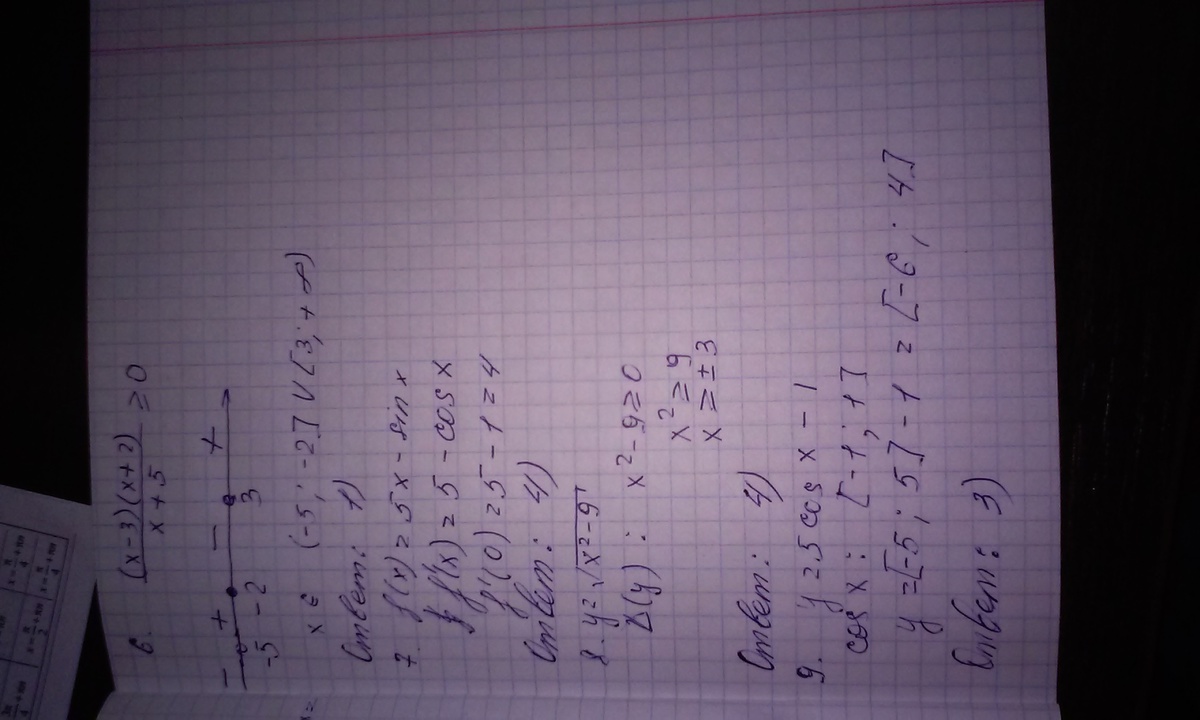 6. (x-3)(x+2)/x+5 ≥ 0
- + - +
-5 -2 3
x ∈ (-5; -2] ∪ [3; +∞)
Ответ: 1)
7. f(x) = 5x - sin x
f'(x) = 5 - cos x
f'(0) = 5 - 1 = 4
Ответ: 4)
8. y = √x²-9
D(y): x² - 9 ≥ 0
x² ≥ 9
x ≥ ±3
Ответ: 4)
9. y = 5 cos x - 1
cos x: [-1; 1]
y = [-5; 5] - 1 = [-6; 4]
Ответ: 3)